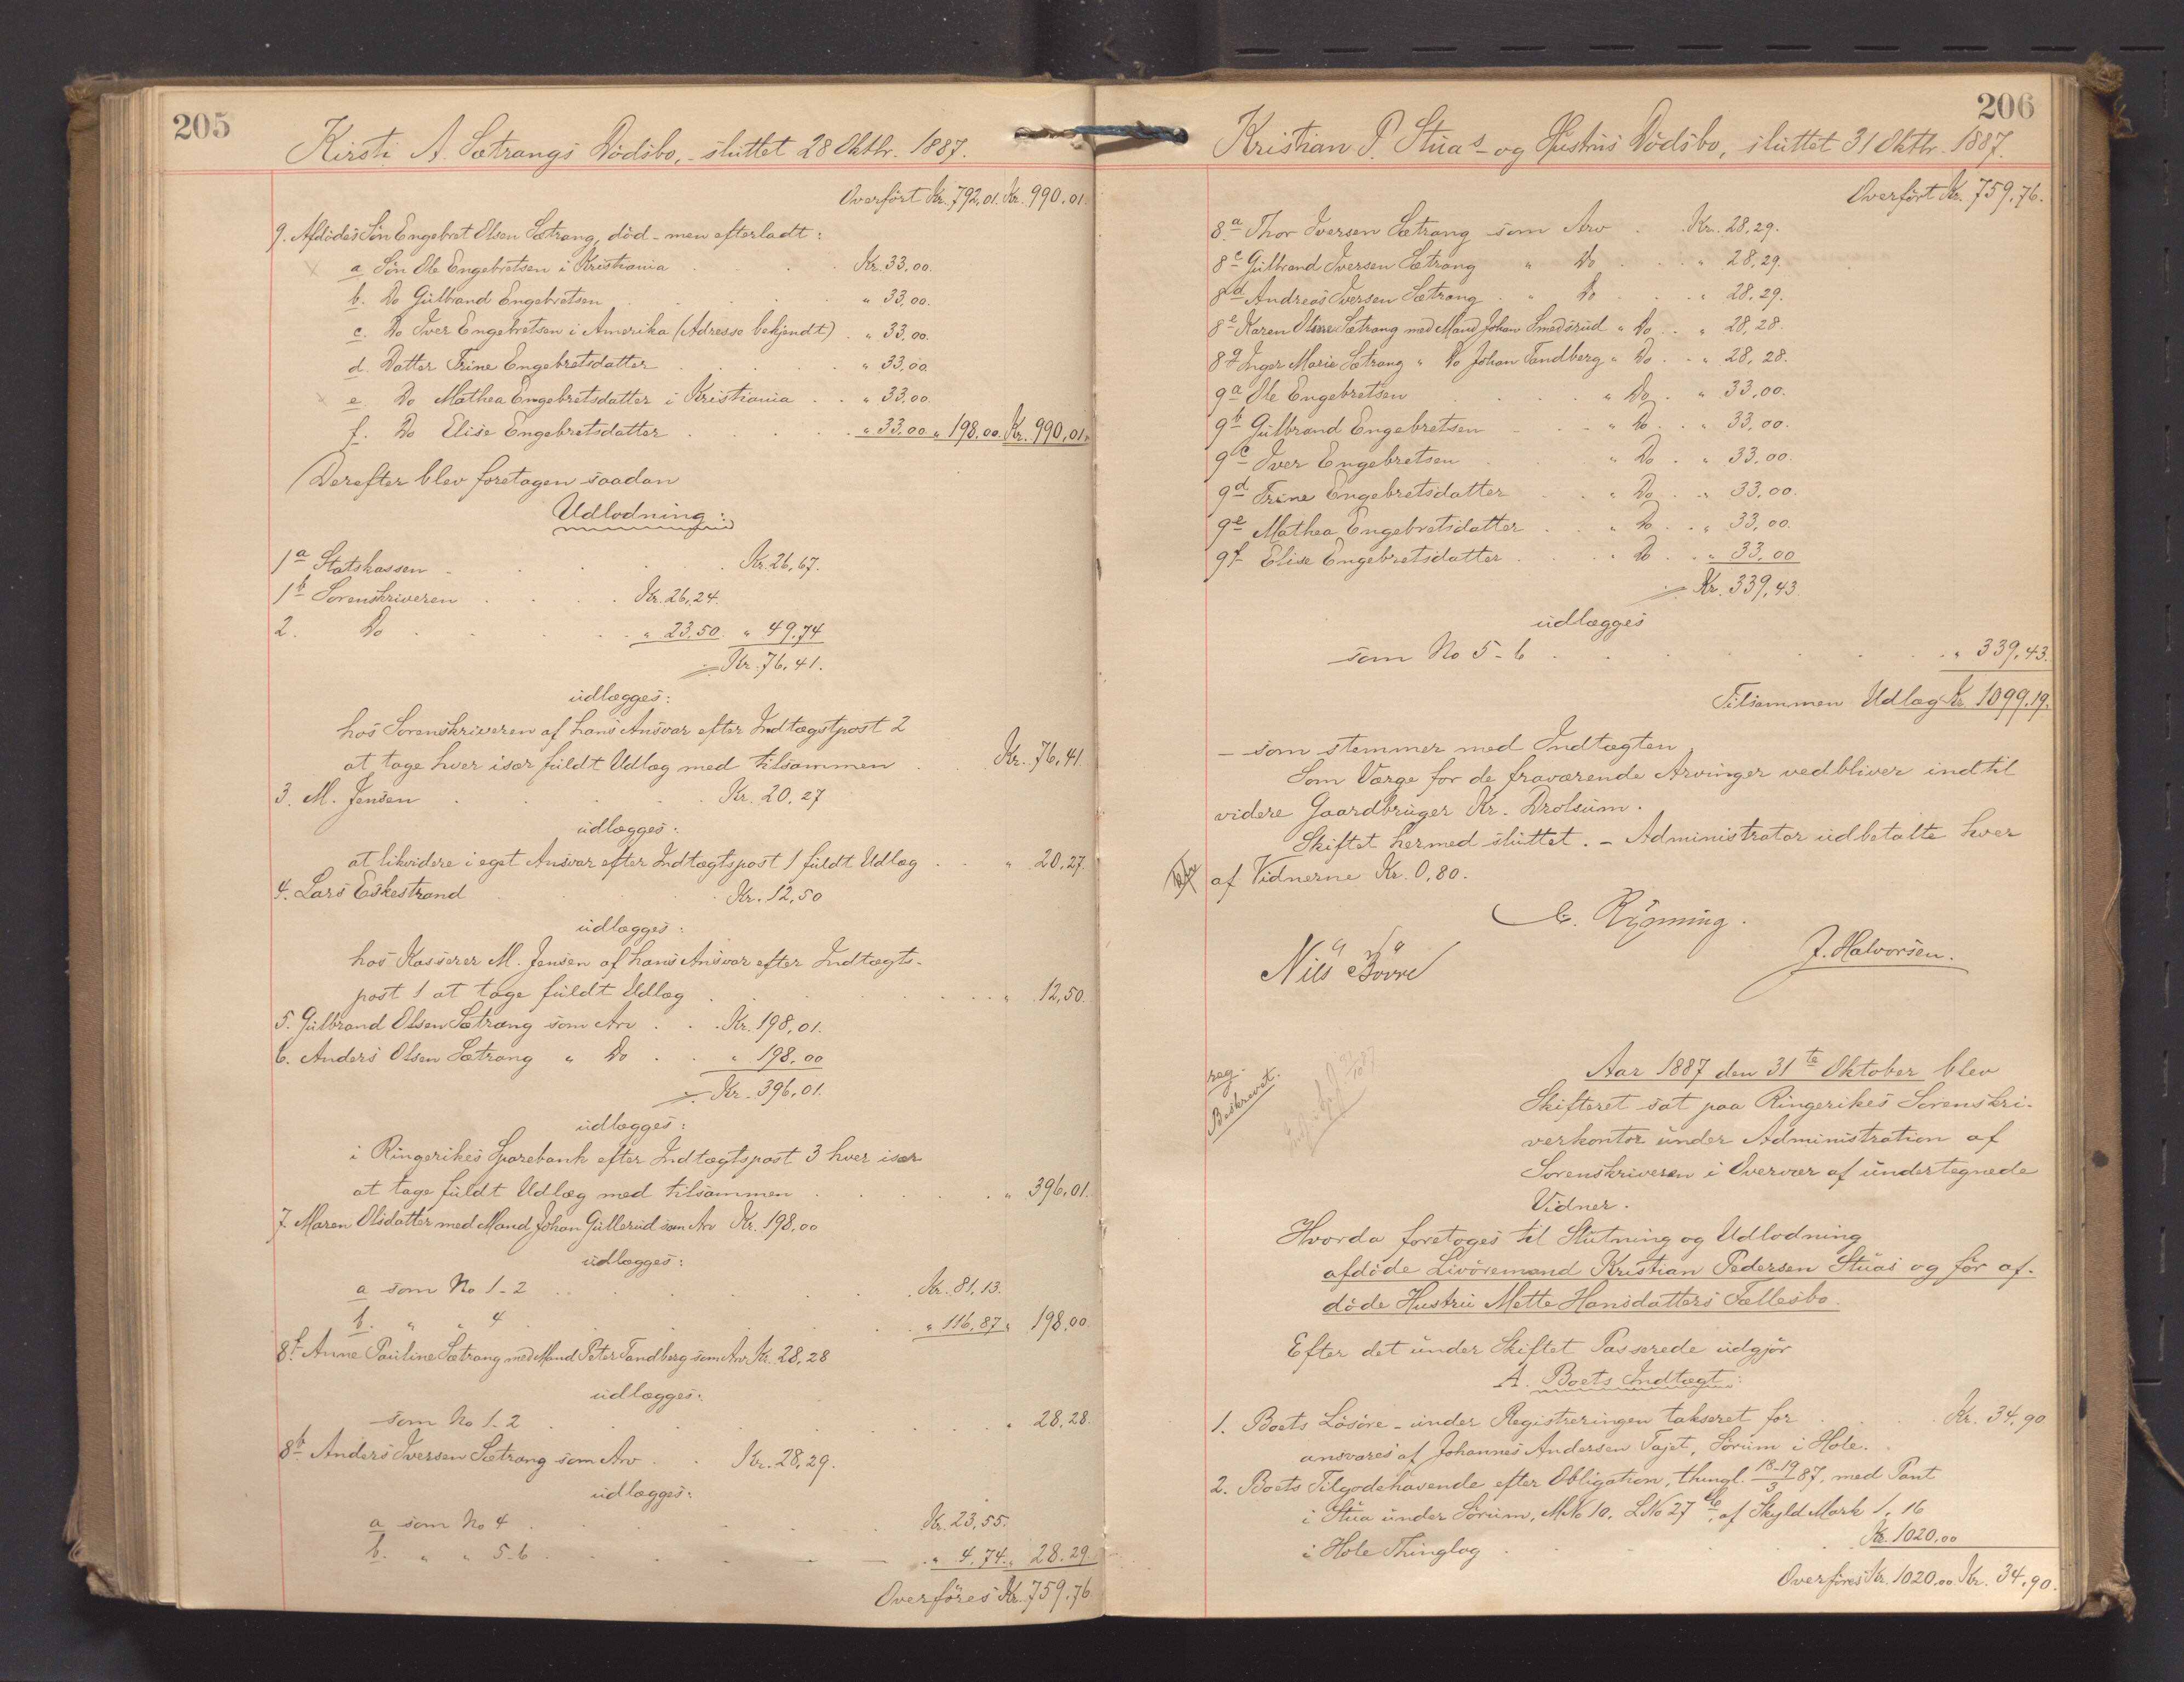 205
Kirsti A. Sætrangs Dödsbo, - sluttet 28 Oktbr. 1887.
Overfört Kr. 792,01. Kr. 990,01.
9. Afdödes Sön Engebret Olsen Sætrang, död - men efterladt:
a Sön Ole Engebretsen i Kristiania . . . Kr. 33,00.
b. Do Gulbrand Engebretsen . . . " 33,00.
c. Do Iver Engebretsen i Amerika (Adresse bekjendt) . " 33,00.
d. Datter Trine Engebretsdatter . . . " 33,00
e. Do Mathea Engebretsdatter i Kristiania . . " 33,00
f. Do Elise Engebretsdatter . . . " 33,00 " 198,00. Kr. 990,01.
Derefter blev foretagen saadan
Udlodning:
1a Statskassen . . . Kr. 26,67.
1b Sorenskriveren . . . Kr. 26,24.
2. Do . . . " 23,50. " 49,74
Kr. 76,41.
udlægges:
hos Sorenskriveren af hans Ansvar efter Indtægtspost 2
at tage hver især fuldt Udlæg med tilsammen . . Kr. 76,41.
3. M. Jensen . . . Kr. 20,27
udlægges:
at likvidere i eget Ansvar efter Indtægtspost 1 fuldt Udlæg . . " 20,27.
4. Lars Eskestrand . . . Kr. 12,50
udlægges:
hos Kasserer M. Jensen af hans Ansvar efter Indtægts-
post 1 at tage fuldt Udlæg . . . " 12,50.
5. Gulbrand Olsen Sætrang som Arv . . . Kr. 198,01.
6. Anders Olsen Sætrang " Do . . " 198,00
Kr. 396,01.
udlægges:
i Ringerikes Sparebank efter Indtægtspost 3 hver især
at tage fuldt Udlæg med tilsammen . . . " 396,01.
7. Maren Olsdatter med Mand Johan Gullerud som Arv Kr. 198,00
udlægges:
a som No 1-2 . . . Kr. 81,13.
b. " " 4 . . . " 116,87 " 198,00.
8f Anne Pauline Sætrang med Mand Peter Tandberg som Arv Kr. 28,28
udlægges:
som No 1-2 . . . " 28,28.
8b Anders Iversen Sætrang som Arv . . Kr. 28,29.
udlægges:
a som No 4 . . . Kr. 23,55.
b. " " 5-6 . . . " 4,74. " 28,29.
Overföres Kr. 759,76.
206
Kristian P. Stuas og Hustrus Dödsbo, sluttet 31 Oktbr. 1887.
Overfört Kr. 759,76.
8a Thor Iversen Sætrang som Arv . . Kr. 28,29.
8c Gulbrand Iversen Sætrang " Do . . " 28,29.
8d Andreas Iversen Sætrang . " Do . . " 28,29.
8e Karen Sætrang med Mand Johan Smedsrud " Do . . " 28,28.
8g Inger Marie Sætrang " Do Johan Tandberg " Do . . " 28,28.
9a Ole Engebretsen . . . " Do . " 33,00.
9b Gulbrand Engebretsen . . " Do . . " 33,00.
9c Iver Engebretsen . . " Do . " 33,00.
9d Trine Engebretsdatter . . " Do . . " 33,00.
9e Mathea Engebretsdatter . . " Do . . " 33,00.
9f Elise Engebretsdatter . . " Do . . " 33,00
Kr. 339,43.
udlægges
som No 5-6 . . . " 339,43.
Tilsammen Udlæg Kr. 1099,19.
- som stemmer med Indtægten.
Som Værge for de fraværende Arvinger vedbliver indtil
videre Gaardbruger Kr. Drolsum.
Skiftet hermed sluttet. - Administrator udbetalte hver
af Vidnerne Kr. 0,80.
C. Rynning.
Nils Bövre
J. Halvorsen.
reg.
Beskrevet.
31/10 87
Aar 1887 den 31te Oktober blev
Skifteret sat paa Ringerikes Sorenskri-
verkontor under Administration af
Sorenskriveren i Overvær af undertegnede
Vidner.
Hvorda foretoges til Slutning og Udlodning
afdöde Livöremand Kristian Pedersen Stuas og för af-
döde Hustru Mette Hansdatters Fællesbo.
Efter det under Skiftet Passerede udgjör
A. Boets Indtægt:
1. Boets Lösöre - under Registreringen takseret for . . Kr. 34,90
ansvares af Johannes Andersen Tajet, Sörum i Hole.
2. Boets Tilgodehavende efter Obligation, thingl. 18-19/3 87, med Pant
i Stua under Sörum, MNo 10, LNo 27 c, af Skyld Mark 1,16
i Hole Thinglag . . . Kr. 1020,00
Overföres Kr. 1020,00 Kr. 34,90.